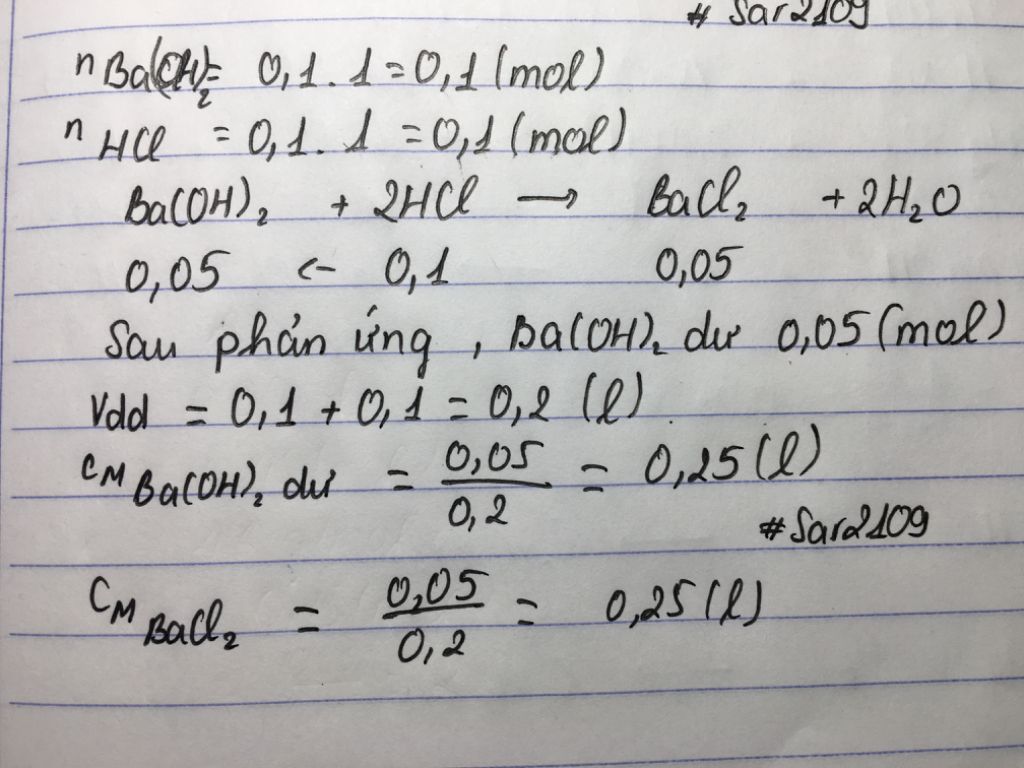 # Sar2109
nBa(OH)₂ = 0,1 . 1 = 0,1 (mol)
nHCl = 0,1 . 1 = 0,1 (mol)
Ba(OH)₂ + 2HCl → BaCl₂ + 2H₂O
0,05 ← 0,1 0,05
Sau phản ứng , Ba(OH)₂ dư 0,05 (mol)
Vdd = 0,1 + 0,1 = 0,2 (l)
CM Ba(OH)₂ dư = 0,05/0,2 = 0,25 (l)
# Sar2109
CM BaCl₂ = 0,05/0,2 = 0,25 (l)